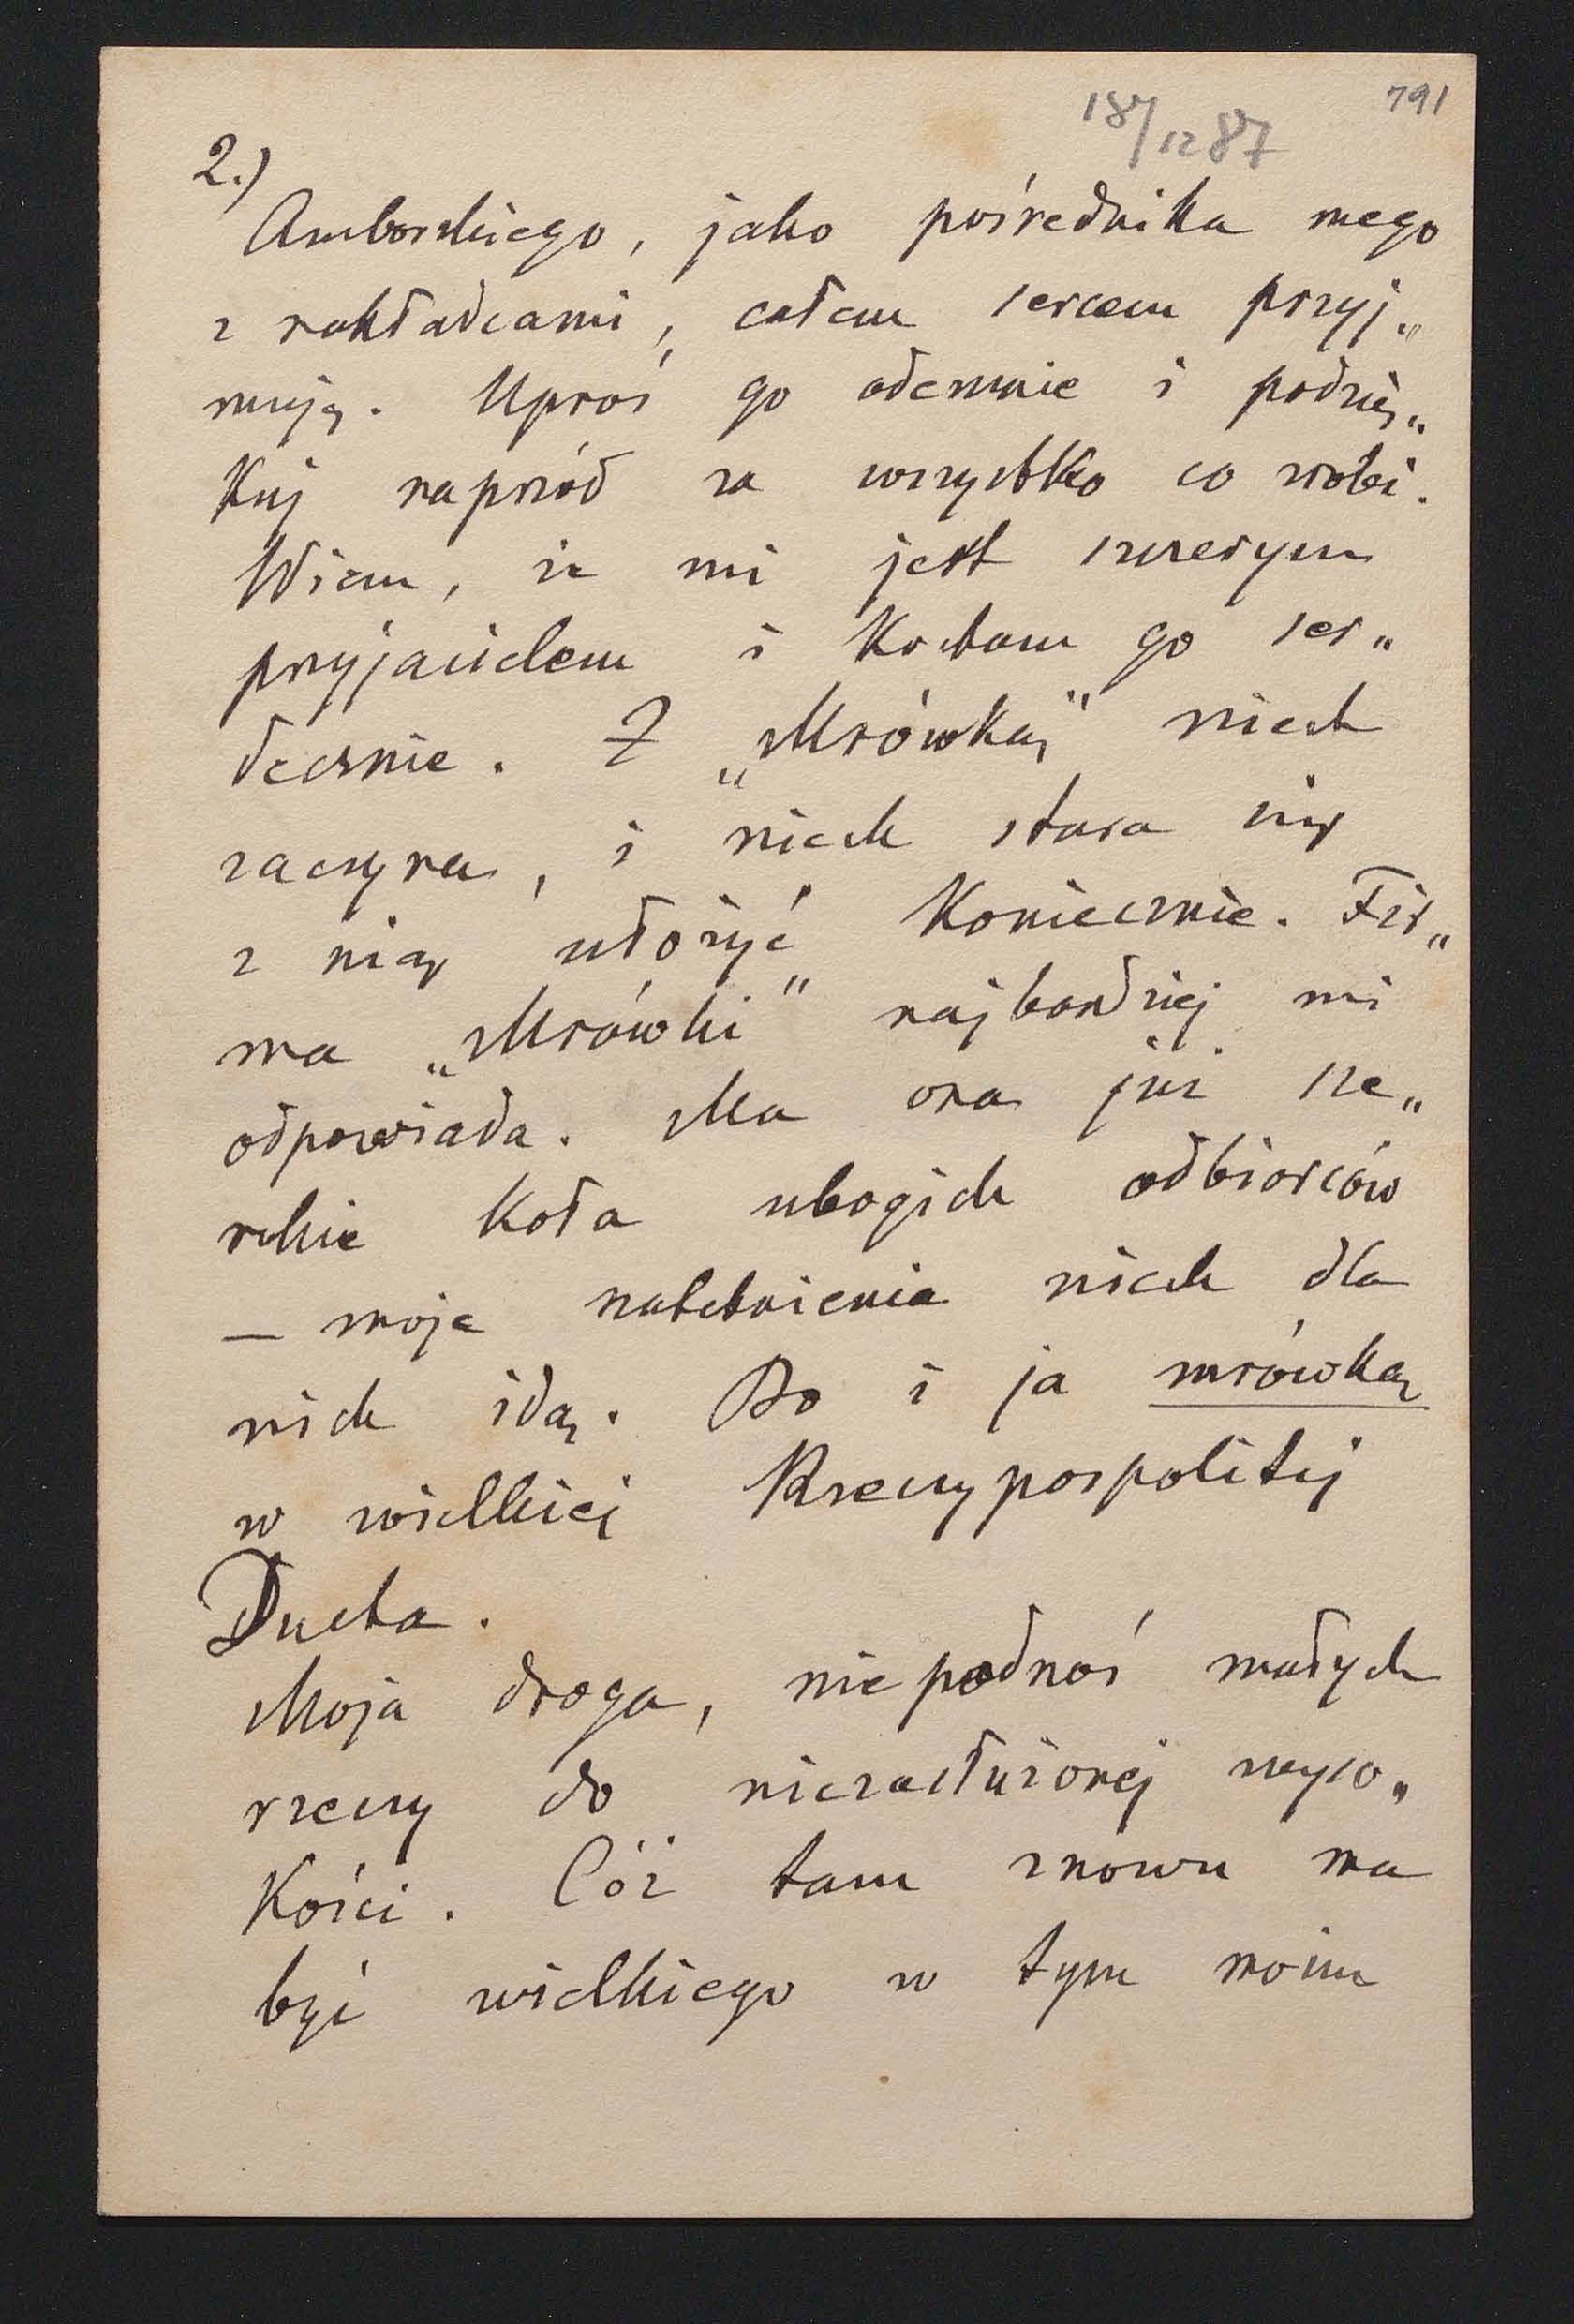 791
18/12 87
2.)
Amborskiego, jako pośrednika mego
z nakładcami, całem sercem przyj„
muję. Uproś go odemnie i podzię„
kuj naprzód za wszystko co zrobi.
Wiem, że mi jest szczerym
przyjacielem i kocham go ser„
decznie. Z „Mrówką" niech
zaczyna, i niech stara się
z nią ułożyć koniecznie. Fir„
ma „Mrówki" najbardziej mi
odpowiada. Ma ona już sze„
rokie koła ubogich odbiorców
— moje natchnienia niech dla
nich idą. Bo i ja mrówką
w wielkiej Rzeczypospolitej
Ducha.
Moja droga, nie podnoś małych
rzeczy do niezasłużonej wyso„
kości. Cóż tam znowu ma
być wielkiego w tym moim